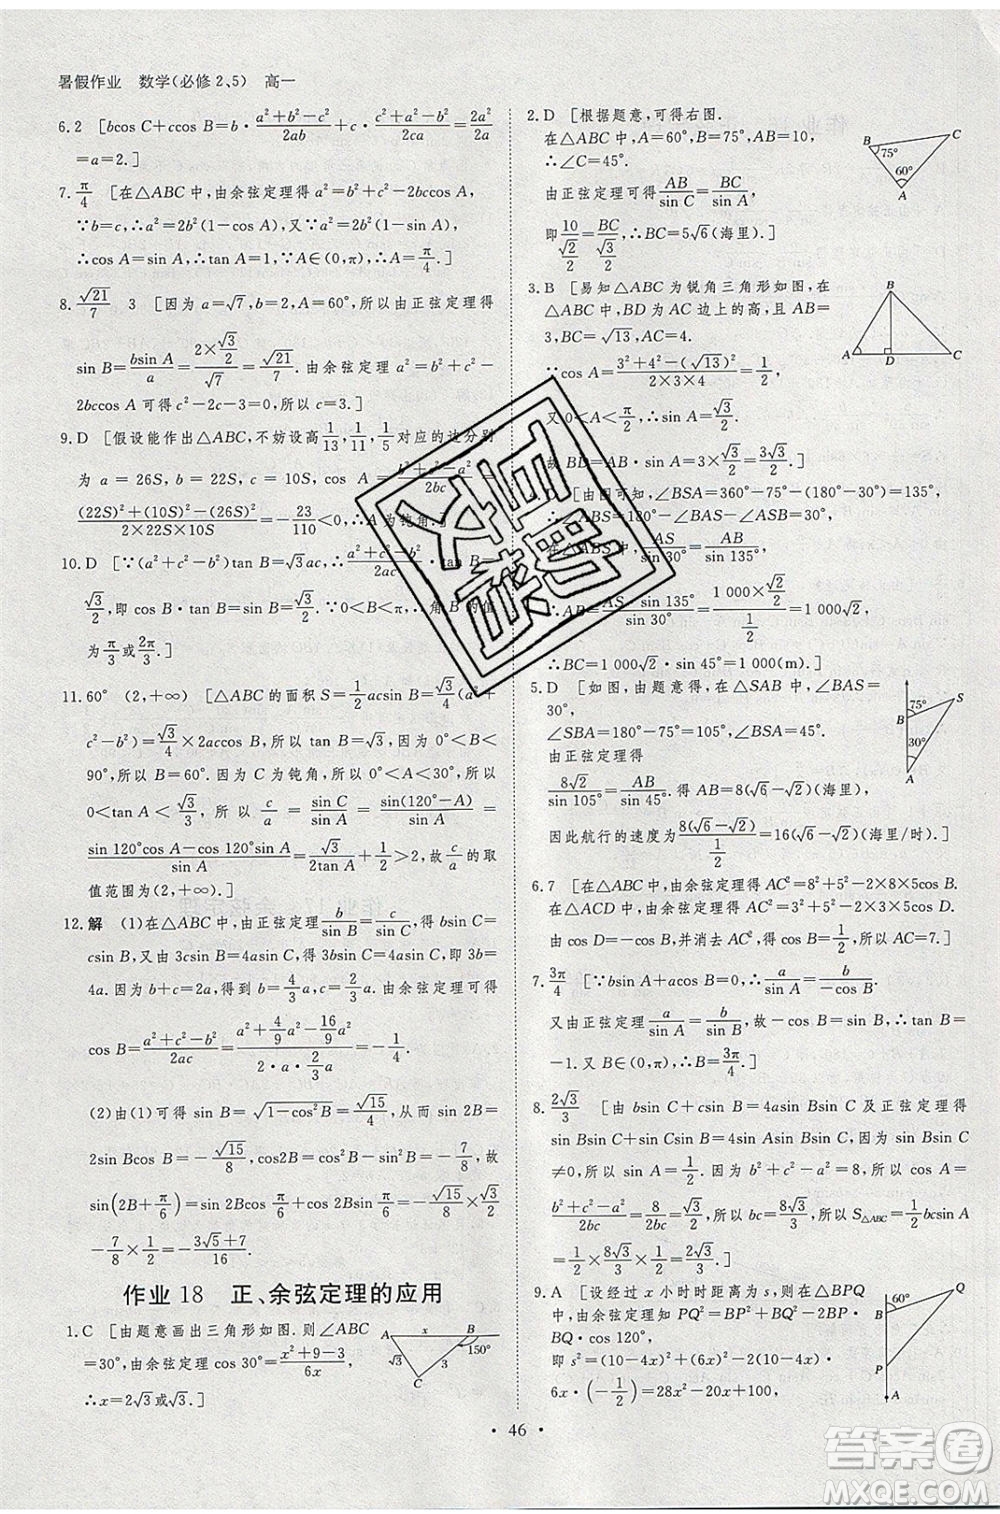 暑假作业 数学(必修2、5) 高一
6.2 [bcos C+ccos B=b·\frac{a²+b²-c²}{2ab}+c·\frac{a²+c²-b²}{2ca}=\frac{2a²}{2a}=
a=2.]
7.\frac{π}{4} [在△ABC中,由余弦定理得a²=b²+c²-2bccos A,
∵b=c,∴a²=2b²(1-cos A),又∵a²=2b²(1-sin A),
∴cos A=sin A,∴tan A=1,∵A∈(0,π),∴A=\frac{π}{4}.]
8.\frac{√21}{7} 3 [因为a=√7,b=2,A=60°,所以由正弦定理得
sin B=\frac{bsin A}{a}=\frac{2×\frac{√3}{2}}{√7}=\frac{√21}{7}.由余弦定理a²=b²+c²-
2bccos A可得c²-2c-3=0,所以c=3.]
9.D [假设能作出△ABC,不妨设高\frac{1}{13},\frac{1}{11},\frac{1}{5}对应的边分别
为a=26S,b=22S,c=10S,cos A=\frac{b²+c²-a²}{2bc}=
\frac{(22S)²+(10S)²-(26S)²}{2×22S×10S}=-\frac{23}{110}<0,∴A为钝角.]
10.D [∵(a²+c²-b²)tan B=√3ac,∴\frac{a²+c²-b²}{2ac}·tan B=
\frac{√3}{2},即cos B·tan B=sin B=\frac{√3}{2}.∵0<B<π,∴角B的值
为\frac{π}{3}或\frac{2π}{3}.]
11.60° (2,+∞) [△ABC的面积S=\frac{1}{2}acsin B=\frac{√3}{4}(a²+
c²-b²)=\frac{√3}{4}×2accos B,所以tan B=√3,因为0°<B<
90°,所以B=60°.因为C为钝角,所以0°<A<30°,所以
0<tan A<\frac{√3}{3},所以\frac{c}{a}=\frac{sin C}{sin A}=\frac{sin(120°-A)}{sin A}=
\frac{sin 120°cos A-cos 120°sin A}{sin A}=\frac{√3}{2tan A}+\frac{1}{2}>2,故\frac{c}{a}的取
值范围为(2,+∞).]
12.解 (1)在△ABC中,由正弦定理\frac{b}{sin B}=\frac{c}{sin C},得bsin C=
csin B,又由3csin B=4asin C,得3bsin C=4asin C,即3b=
4a.又因为b+c=2a,得到b=\frac{4}{3}a,c=\frac{2}{3}a.由余弦定理可得
cos B=\frac{a²+c²-b²}{2ac}=\frac{a²+\frac{4}{9}a²-\frac{16}{9}a²}{2·a·\frac{2}{3}a}=-\frac{1}{4}.
(2)由(1)可得sin B=\sqrt{1-cos²B}=\frac{√15}{4},从而sin 2B=
2sin Bcos B=-\frac{√15}{8},cos2B=cos²B-sin²B=-\frac{7}{8},故
sin(2B+\frac{π}{6})=sin 2Bcos\frac{π}{6}+cos 2Bsin\frac{π}{6}=-\frac{√15}{8}×\frac{√3}{2}
-\frac{7}{8}×\frac{1}{2}=-\frac{3√5+7}{16}.
作业18 正、余弦定理的应用
1.C [由题意画出三角形如图.∠ABC
=30°,由余弦定理cos 30°=\frac{x²+9-3}{6x},
∴x=2√3或√3.]
A x B 150° √3 3 C
2.D [根据题意,可得右图.
在△ABC中,A=60°,B=75°,AB=10,
∴∠C=45°.
由正弦定理可得\frac{AB}{sin C}=\frac{BC}{sin A},
即\frac{10}{\frac{√2}{2}}=\frac{BC}{\frac{√3}{2}},∴BC=5√6(海里).]
B 75° 60° C A
3.B [易知△ABC为锐角三角形如图,在
△ABC中,BD为AC边上的高,且AB=
3,BC=√13,AC=4.
∵cos A=\frac{3²+4²-(√13)²}{2×3×4}=\frac{1}{2},
又0<A<\frac{π}{2},∴sin A=\frac{√3}{2}.
故BD=AB·sin A=3×\frac{√3}{2}=\frac{3√3}{2}.]
B A D C
[由图可知,∠BSA=360°-75°-(180°-30°)=135°,
在△ABS中,\frac{AS}{sin 30°}=\frac{AB}{sin 135°},
∴AB=\frac{AS·sin 135°}{sin 30°}=\frac{1 000×\frac{√2}{2}}{\frac{1}{2}}=1 000√2(m),
∴BC=1 000√2·sin 45°=1 000(m).]
5.D [如图,由题意得,在△SAB中,∠BAS=
30°,
∠SBA=180°-75°=105°,∠BSA=45°.
由正弦定理得
\frac{8√2}{sin 105°}=\frac{AB}{sin 45°},得AB=8(√6-√2)(海里),
因此航行的速度为\frac{8(√6-√2)}{\frac{1}{2}}=16(√6-√2)(海里/时).]
75° S B 30° A
6.7 [在△ABC中,由余弦定理得AC²=8²+5²-2×8×5cos B.
在△ACD中,由余弦定理得AC²=3²+5²-2×3×5cos D,由
cos D=-cos B并消去AC²得cos B=\frac{1}{2},所以AC=7.]
7.\frac{3π}{4} [∵bsin A+acos B=0,∴\frac{a}{sin A}=\frac{b}{-cos B}.
又由正弦定理\frac{a}{sin A}=\frac{b}{sin B},故-cos B=sin B,即tan B=
-1.又B∈(0,π),∴B=\frac{3π}{4}.]
8.\frac{2√3}{3} [由bsin C+csin B=4asin Bsin C及正弦定理得
2sin Bsin C=4sin Asin Bsin C,易知sin Bsin C
≠0,所以sin A=\frac{1}{2}.又b²+c²-a²=8,所以cos A=
\frac{b²+c²-a²}{2bc}=\frac{8}{2bc}=\frac{√3}{2},所以bc=\frac{8√3}{3},所以S△ABC=\frac{1}{2}bcsin A
=\frac{1}{2}×\frac{8√3}{3}×\frac{1}{2}=\frac{2√3}{3}.]
9.A [设经过x小时时距离为s,则在△BPQ
中,由余弦定理知PQ²=BP²+BQ²-2BP·
BQ·cos 120°,
即s²=(10-4x)²+(6x)²-2(10-4x)·
6x·(-\frac{1}{2})=28x²-20x+100,
60° Q B P A
·46·
答案卷
MXQE.COM